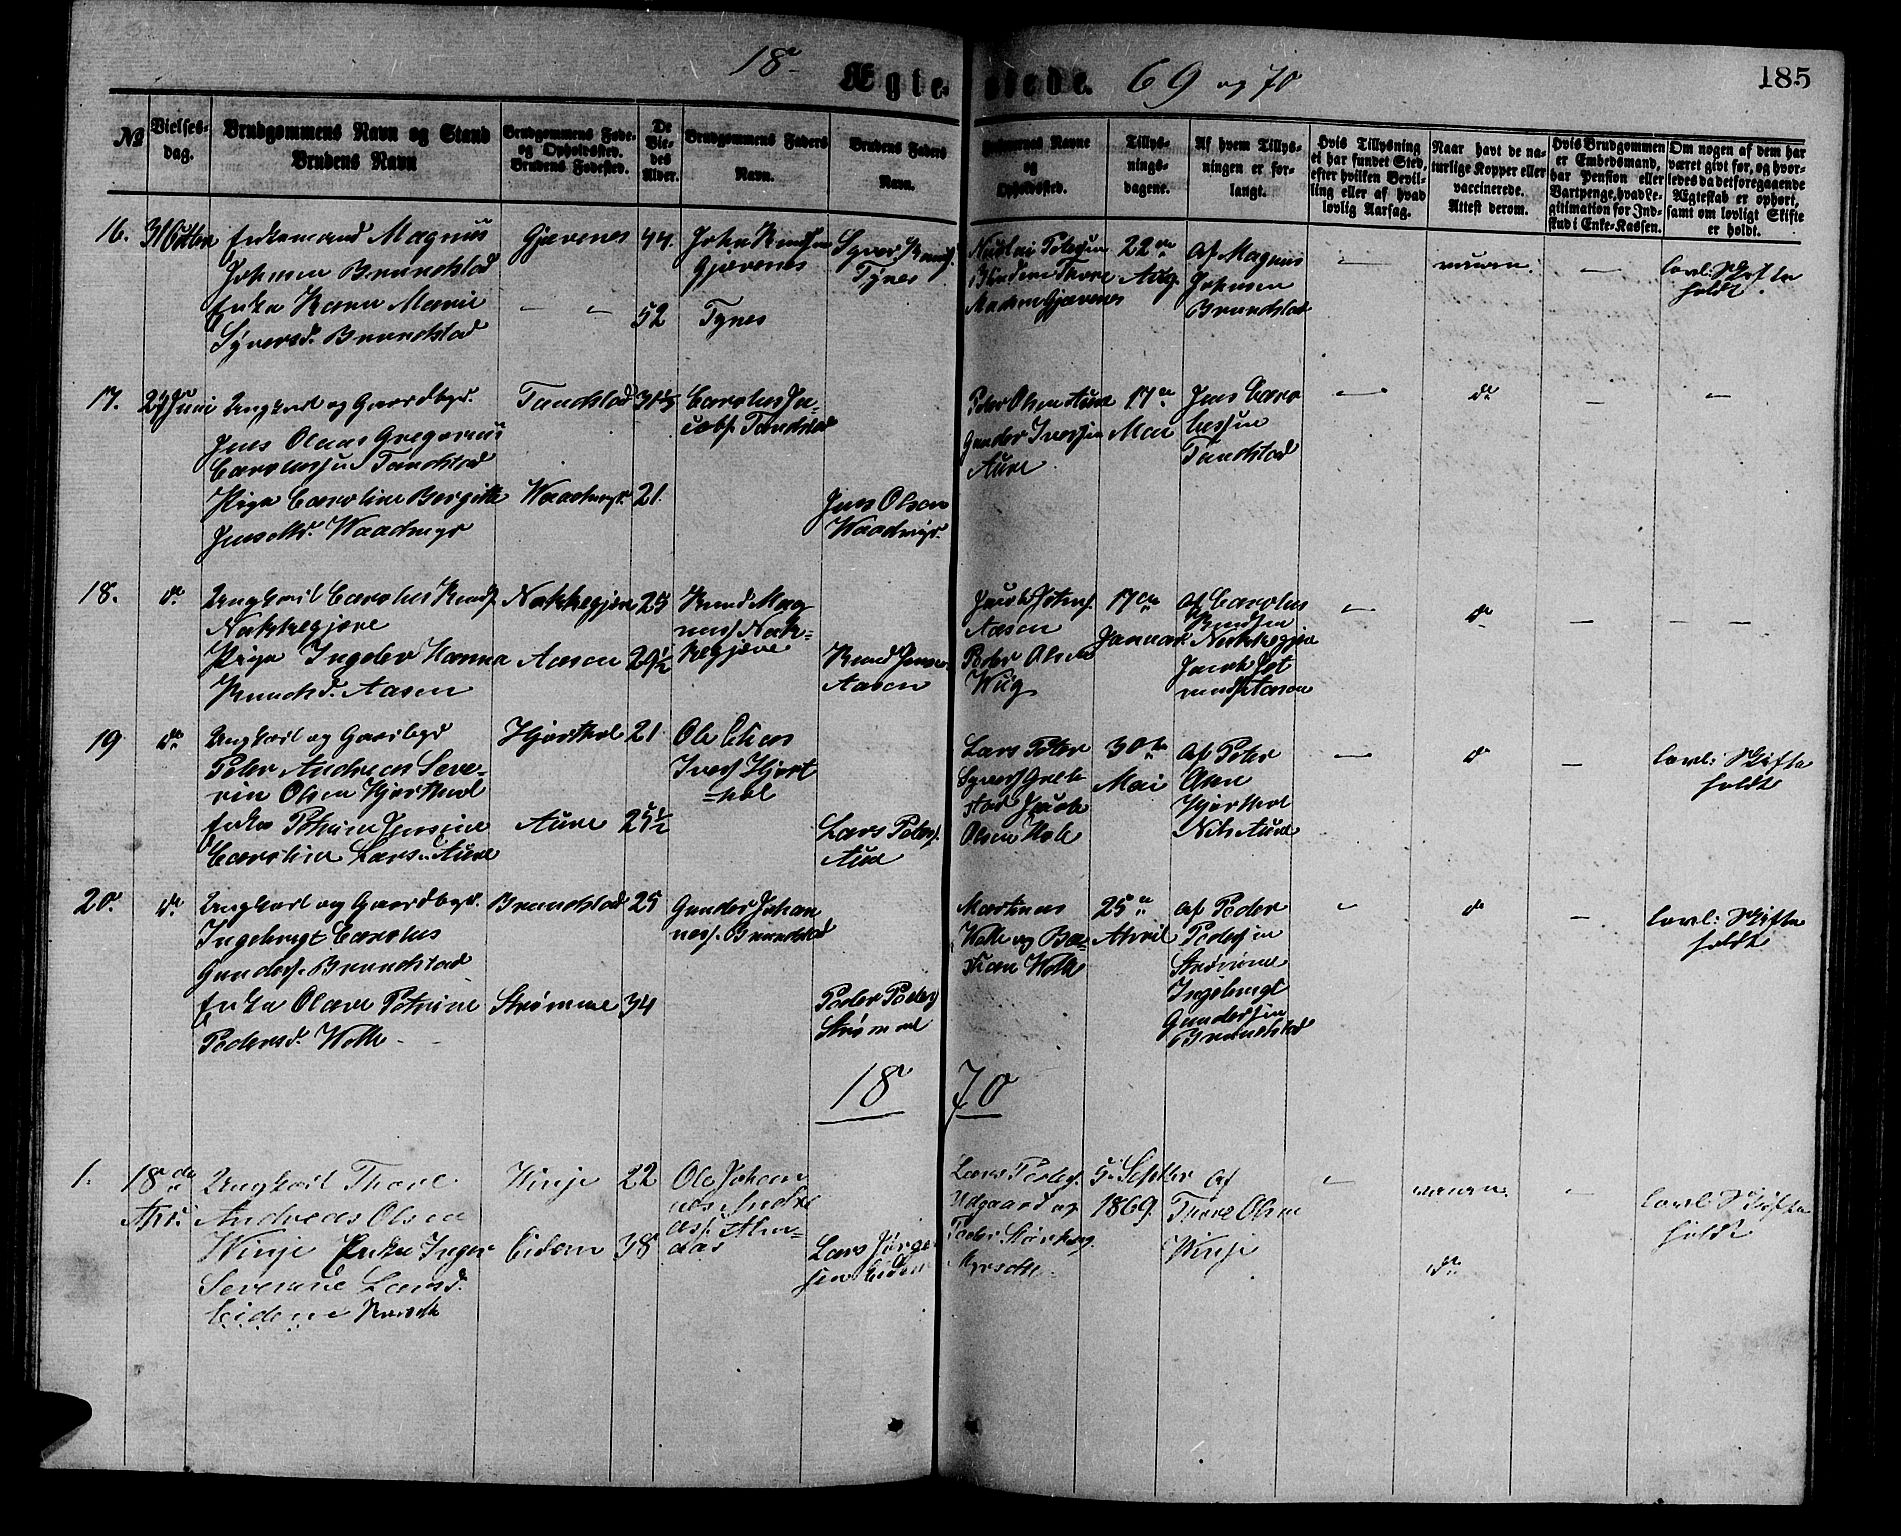 18
Ægteviede.
69 og 70
185
No
Vielses-
dag.
Brudgommens Navn og Stand
Brudens Navn
Brudgommens Føde-
og Opholdssted.
Brudens Fødested.
De
Vie-
des
Alder.
Brudgommens Faders
Navn.
Brudens Faders
Navn.
Navne
og
Opholdssted.
Tillys-
nings-
dagene.
Af hvem Tillys-
ningen er for-
langt.
Hvis Tillysning
ei har fundet Sted,
efter hvilken Bevil-
ling eller af hvad
lovlig Aarsag.
Naar havt de na-
turlige Kopper eller
vaccinerede.
Attest derom.
Hvis Brudgommen
er Embedsmand,
har Pension eller
Vartpenge, hvad Le-
gitimation for Ind-
skud i Enke-Kassen.
Om nogen af dem har
været givt før, og hvor-
ledes da det foregaaende
Ægteskab er ophørt,
samt om lovligt Skifte
er holdt.
16.
31 Octbr
Enkemand Magnus
Johnsen Brundstad
Enke Karen Marie
Syversd. Brundstad
Gjævenes
44.
52
John Knudsen
Gjævenes
Tynes
Syver Knuds.
Tynes
Nicolai Petersen
Thore
Madsen Gjævenes
22de
Aug.
Af Magnus
Johnsen
Brundstad
lovl: Skifte
holdt.
17.
24 Juni
Ungkarl og Gaardbgr.
Jens Olaus Gregorius
Carolussen Tandstad
Pige Caroline Bergitte
Jensdtr. Waadmyr
Tandstad
Waadmyr.
21.
Carolus Ja-
cobs. Tandstad
Jens Olsen
Waadmyr.
Peder Olsen Aure
Gunder Iversen
Aure
17de
Mai
Jens Caro
lussen
Tandstad
do
18.
do
Ungkarl Carolus Knuds.
Nakkegjære
Pige Ingeler Hanna
Knudsd. Aasen
Nakkegjære
Aasen
25
29½
Knud Mag
nus. Nak-
kegjære
Knud Jensen
Aasen
Jacob
Aasen
Peder Olsen
Wiig
17de
Januar
Af Carolus
Knudsen
Nakkegjære
Jacob
Aasen
do
19
do
Ungkarl og Gaardbgr
Peter Andreas Seve-
rin Olsen Hjorthol
Enke Petrine Jensine
Caroline Larsd. Aure
Hjorthol
Aure
21.
25½
Ole Elias
Ivers. Hjort
=hol
Lars Peders.
Aure
Lars Peter
Syvers. Grebstad
Jacob
Olsen Hole
30te
Mai
Af Peter
Olsen
Hjorthol
Nils Aure
do
lovl: Skifte
holdt
20.
do
Ungkarl og Gaardbgr.
Ingebrigt Carolus
Gunders. Brundstad
Enke Olave Petrine
Pedersd. Welle
Brundstad
Strømme
25
34
Gunder Johan
nes. Brundstad
Peder Peders
Strømme
Martinus
Welle og Ba-
stian Welle
25de
April
Af Peder
Pedersen
Strømme
Ingebrigt
Gundersen
Brundstad
do
lovl: Skifte
holdt
18
70
1.
18de
Apr.
Ungkarl Thore
Andreas Olsen
Winje Enke Inger
Severine Larsd.
Eidem
Winje
Eidem
22
38
Ole Johan
nes Andre
as.
Lars Jørgen
sen Eidem
Lars Peders.
Udgaard og
Peder
5. Septbr
1869.
Af
Thore Olsen
Winje
do
lovl: Skifte
holdt